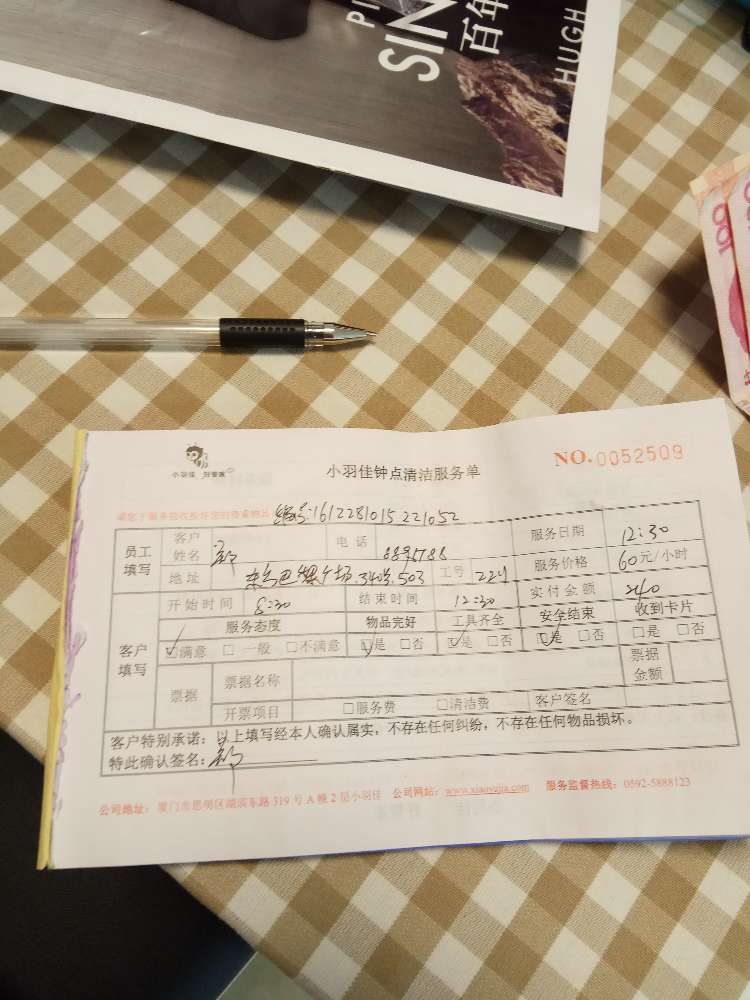 PI
SIN
百年
HUGH
100
小羽佳 好管家
小羽佳钟点清洁服务单
NO.0052509
编号:1612281015221052
员工填写 客户姓名 郭 电话 服务日期 12:30
地址 34號.503 工号 2221 服务价格 60元/小时
开始时间 8:30 结束时间 12:30 实付金额 240
客户填写 服务态度 物品完好 工具齐全 安全结束 收到卡片
☑满意 □一般 □不满意 ☑是 □否 ☑是 □否 ☑是 □否 □是 □否
票据 票据名称 票据金额
开票项目 □服务费 □清洁费 客户签名
客户特别承诺：以上填写经本人确认属实，不存在任何纠纷，不存在任何物品损坏。
特此确认签名：郭
公司地址：厦门市思明区湖滨东路 319 号 A 幢 2 层小羽佳 公司网站：www.xiaoyujia.com 服务监督热线：0592-5888123